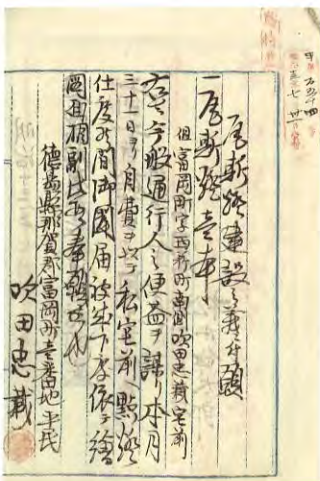 瓦斯燈建設之義ニ付願
一瓦斯燈壹本
但富岡町字西新町南側吹田忠宅前
右ハ今般通行人之便益ヲ謀リ本月
三十一日ヨリ自費ヲ以テ私宅前ヘ點燈
仕度候間御聞届被成下度依テ繪
圖面相副此段奉願候也
徳島縣那賀郡富岡町壹番地平民
吹田忠